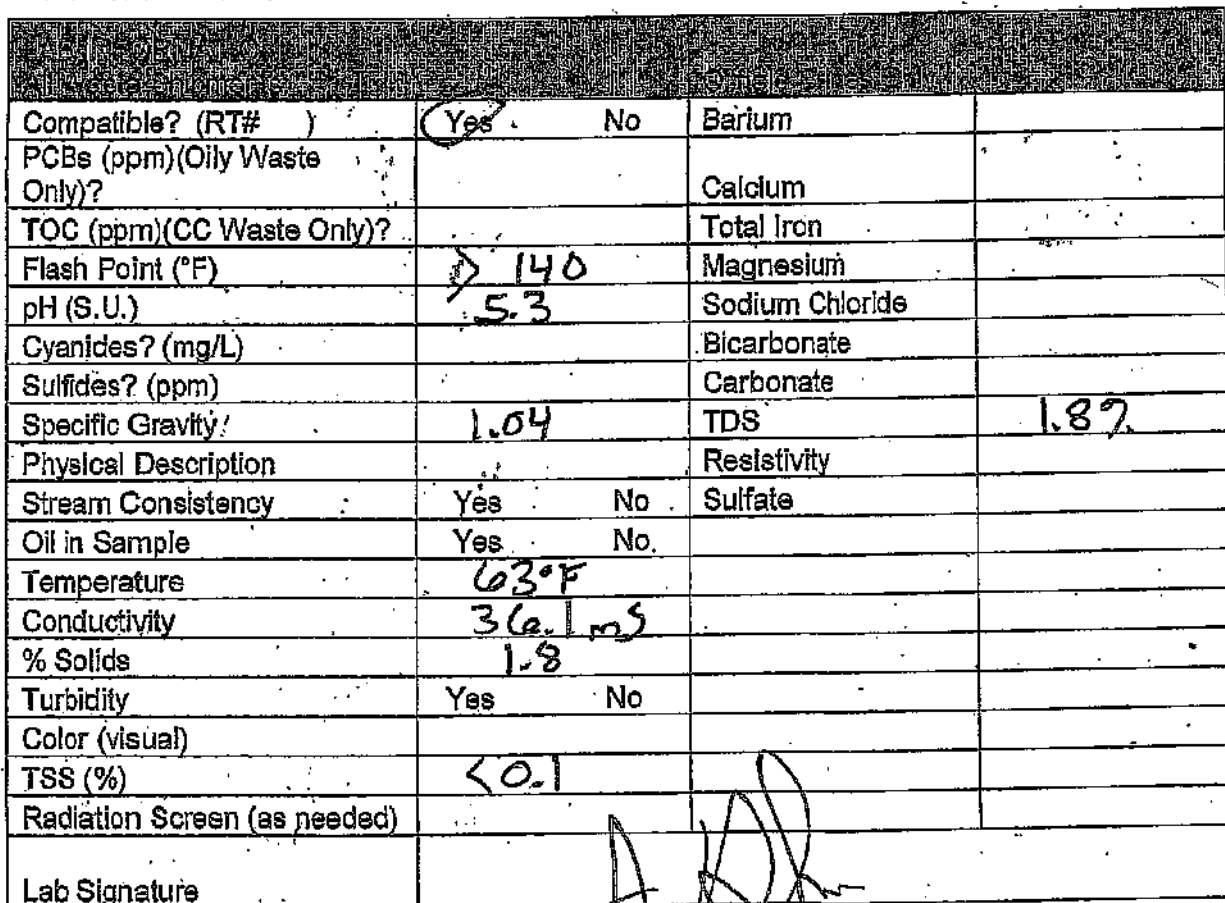 LAB INFORMATION
Compatible? (RT# ) Yes No Barium
PCBs (ppm)(Oily Waste
Only)? Calcium
TOC (ppm)(CC Waste Only)? Total Iron
Flash Point (°F) > 140 Magnesium
pH (S.U.) 5.3 Sodium Chloride
Cyanides? (mg/L) Bicarbonate
Sulfides? (ppm) Carbonate
Specific Gravity 1.04 TDS 1.8%
Physical Description Resistivity
Stream Consistency Yes No Sulfate
Oil in Sample Yes No
Temperature 63°F
Conductivity 36.1 mS
% Solids 1.8
Turbidity Yes No
Color (visual)
TSS (%) <0.1
Radiation Screen (as needed)
Lab Signature